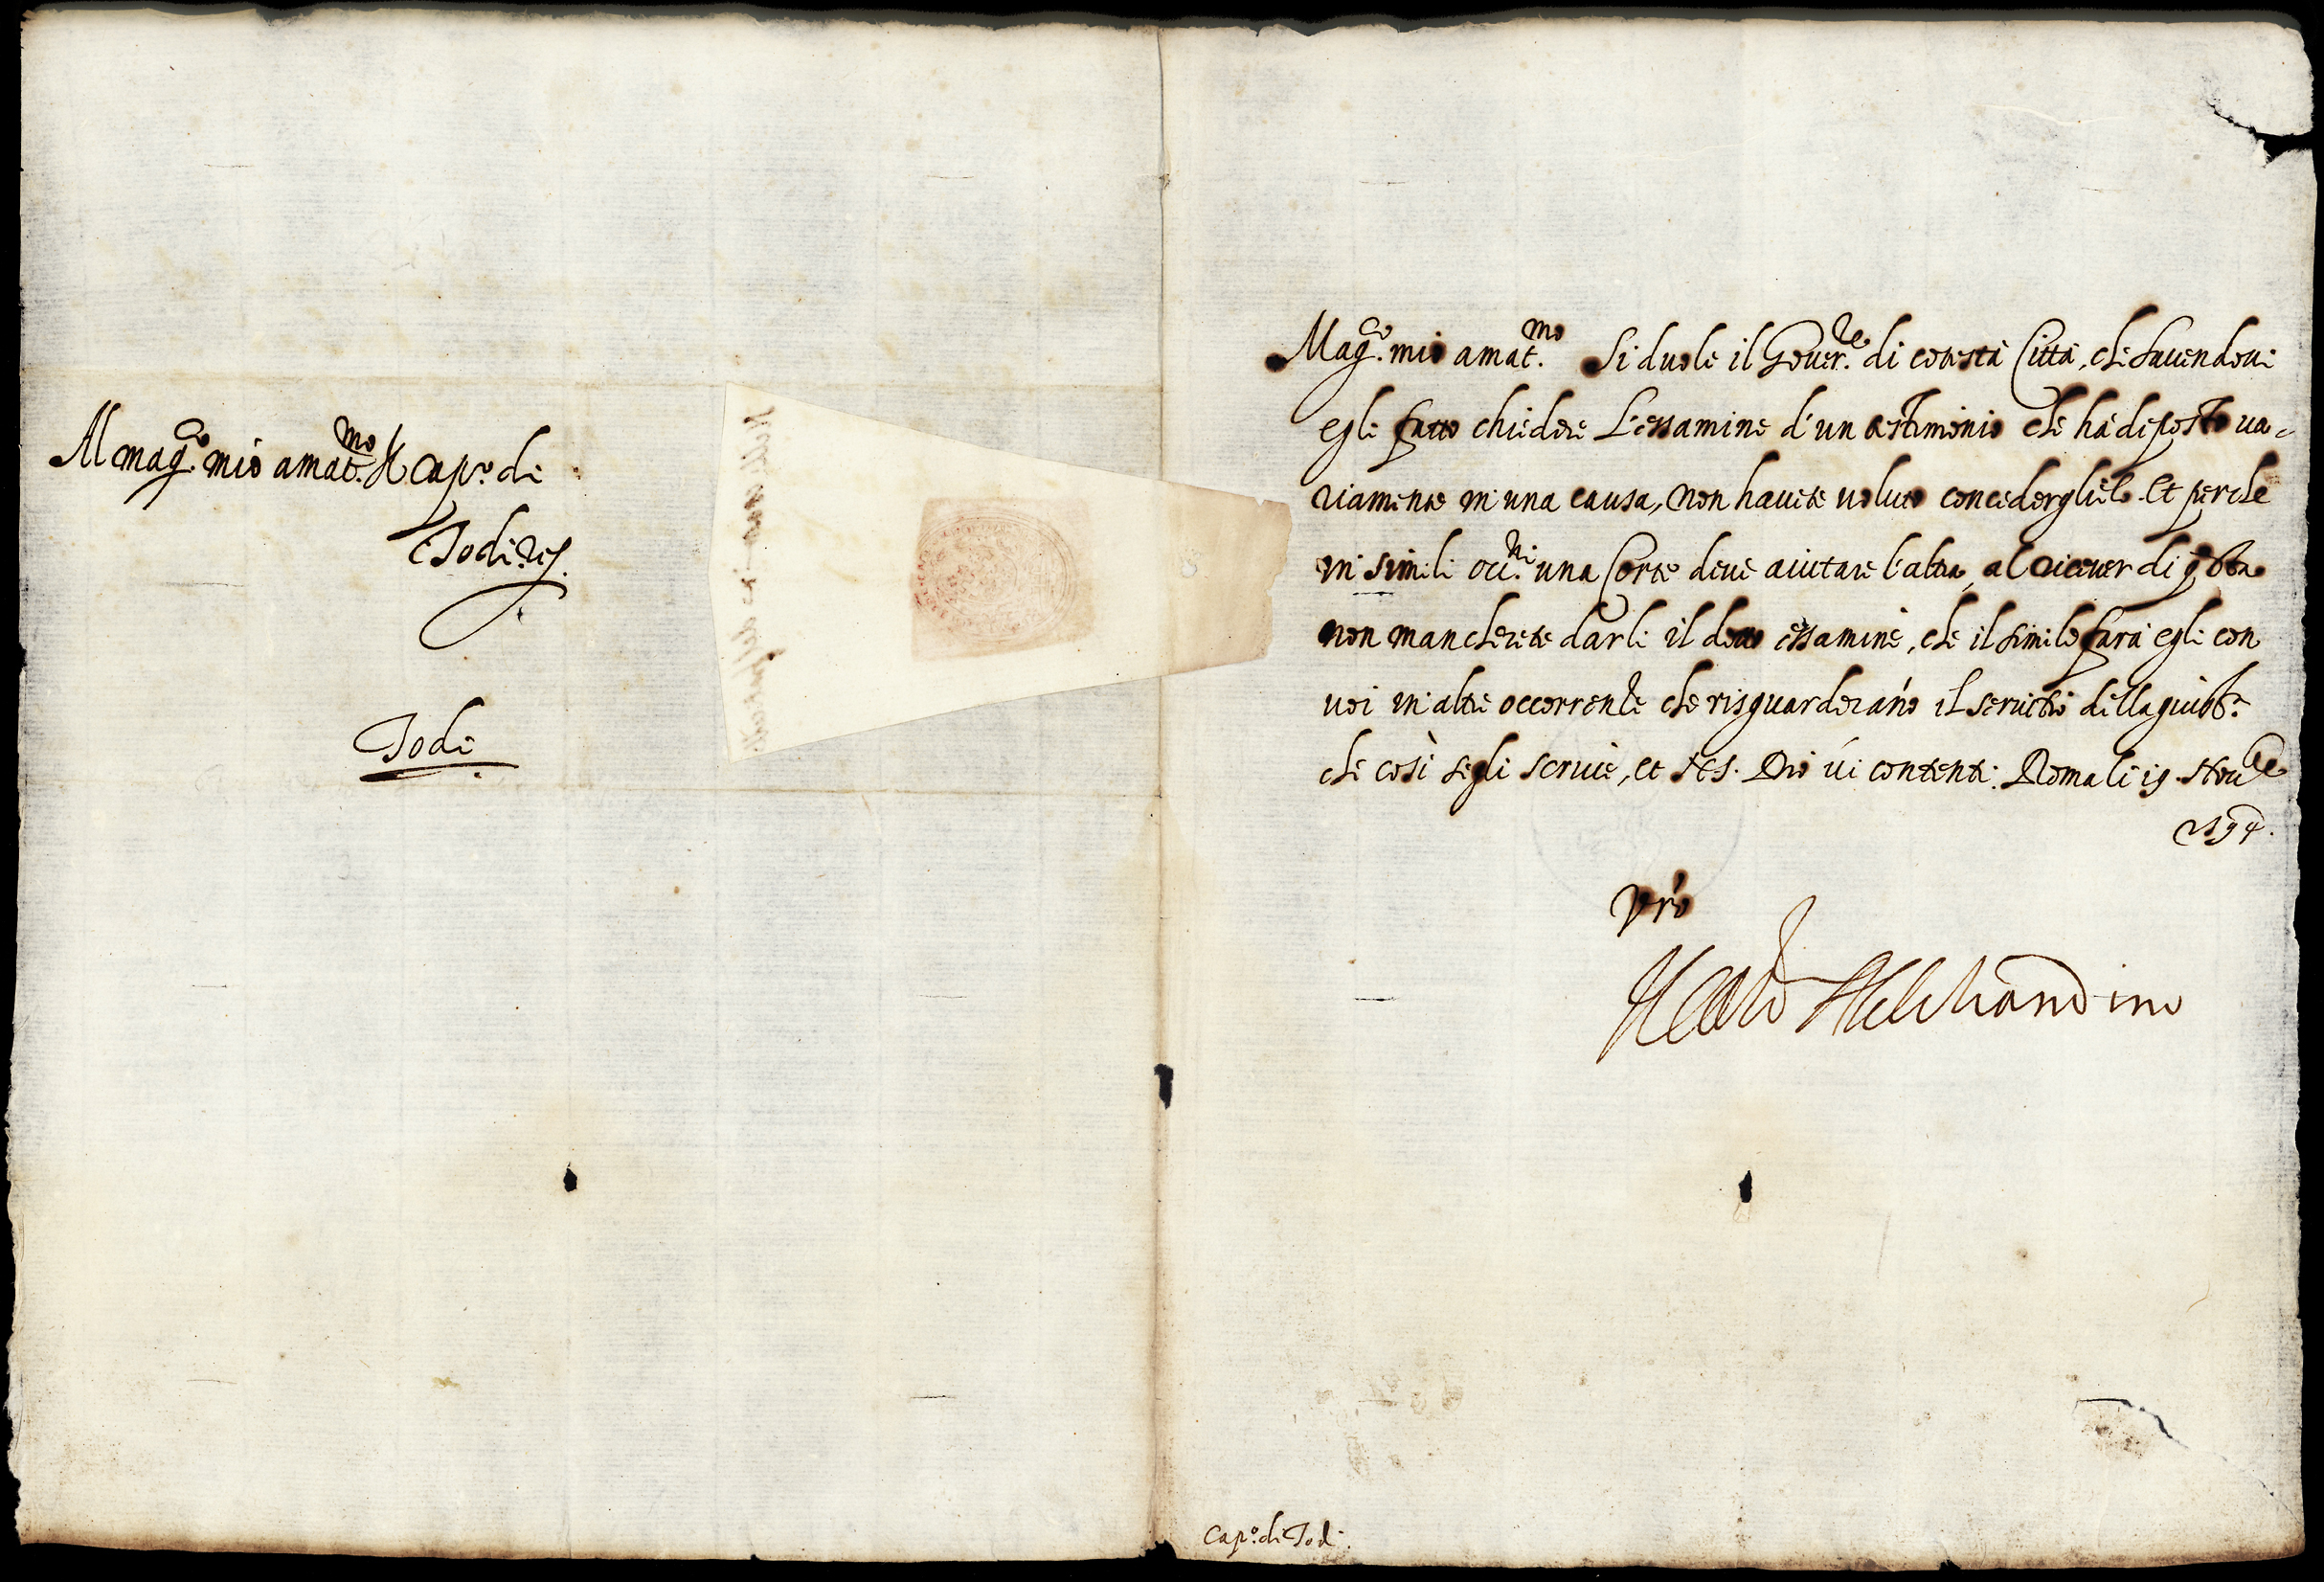 Al mag.co mio amat.mo Il Cap.o di
Todi etc.
Todi
Mag.co mio amat.mo Si duole il Gover.re di cotesta Città, che havendovi
egli fatto chiedere l'essamine d'un testimonio che hà deposto va=
riamente in una causa, non havete voluto concederglielo. Et perche
in simili occ.ni una Corte deve aiutare l'altra, al ricever di q̃sta
non mancherete darli il detto essamine, che il simile farà egli con
voi in altre occorrenze che risguarderan̄o il servitio della giust.a
che così segli scrive, et N.S. Dio vi contenti. Roma li 19 Nov.re
1594.
Vr̃o
Il Car.l Aldobrandino
Cap.o di Todi.